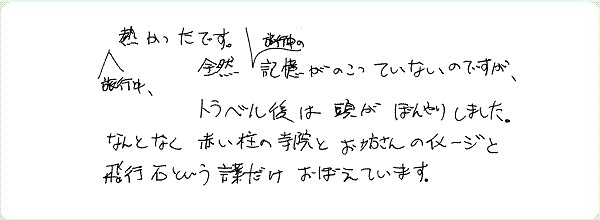 熱かったです。 旅行中の
旅行中、 全然 記憶がのこっていないのですが、
トラベル後は頭がぼんやりしました。
なんとなく 赤い柱の寺院と お坊さんのイメージと
飛行石という言葉だけ おぼえています。